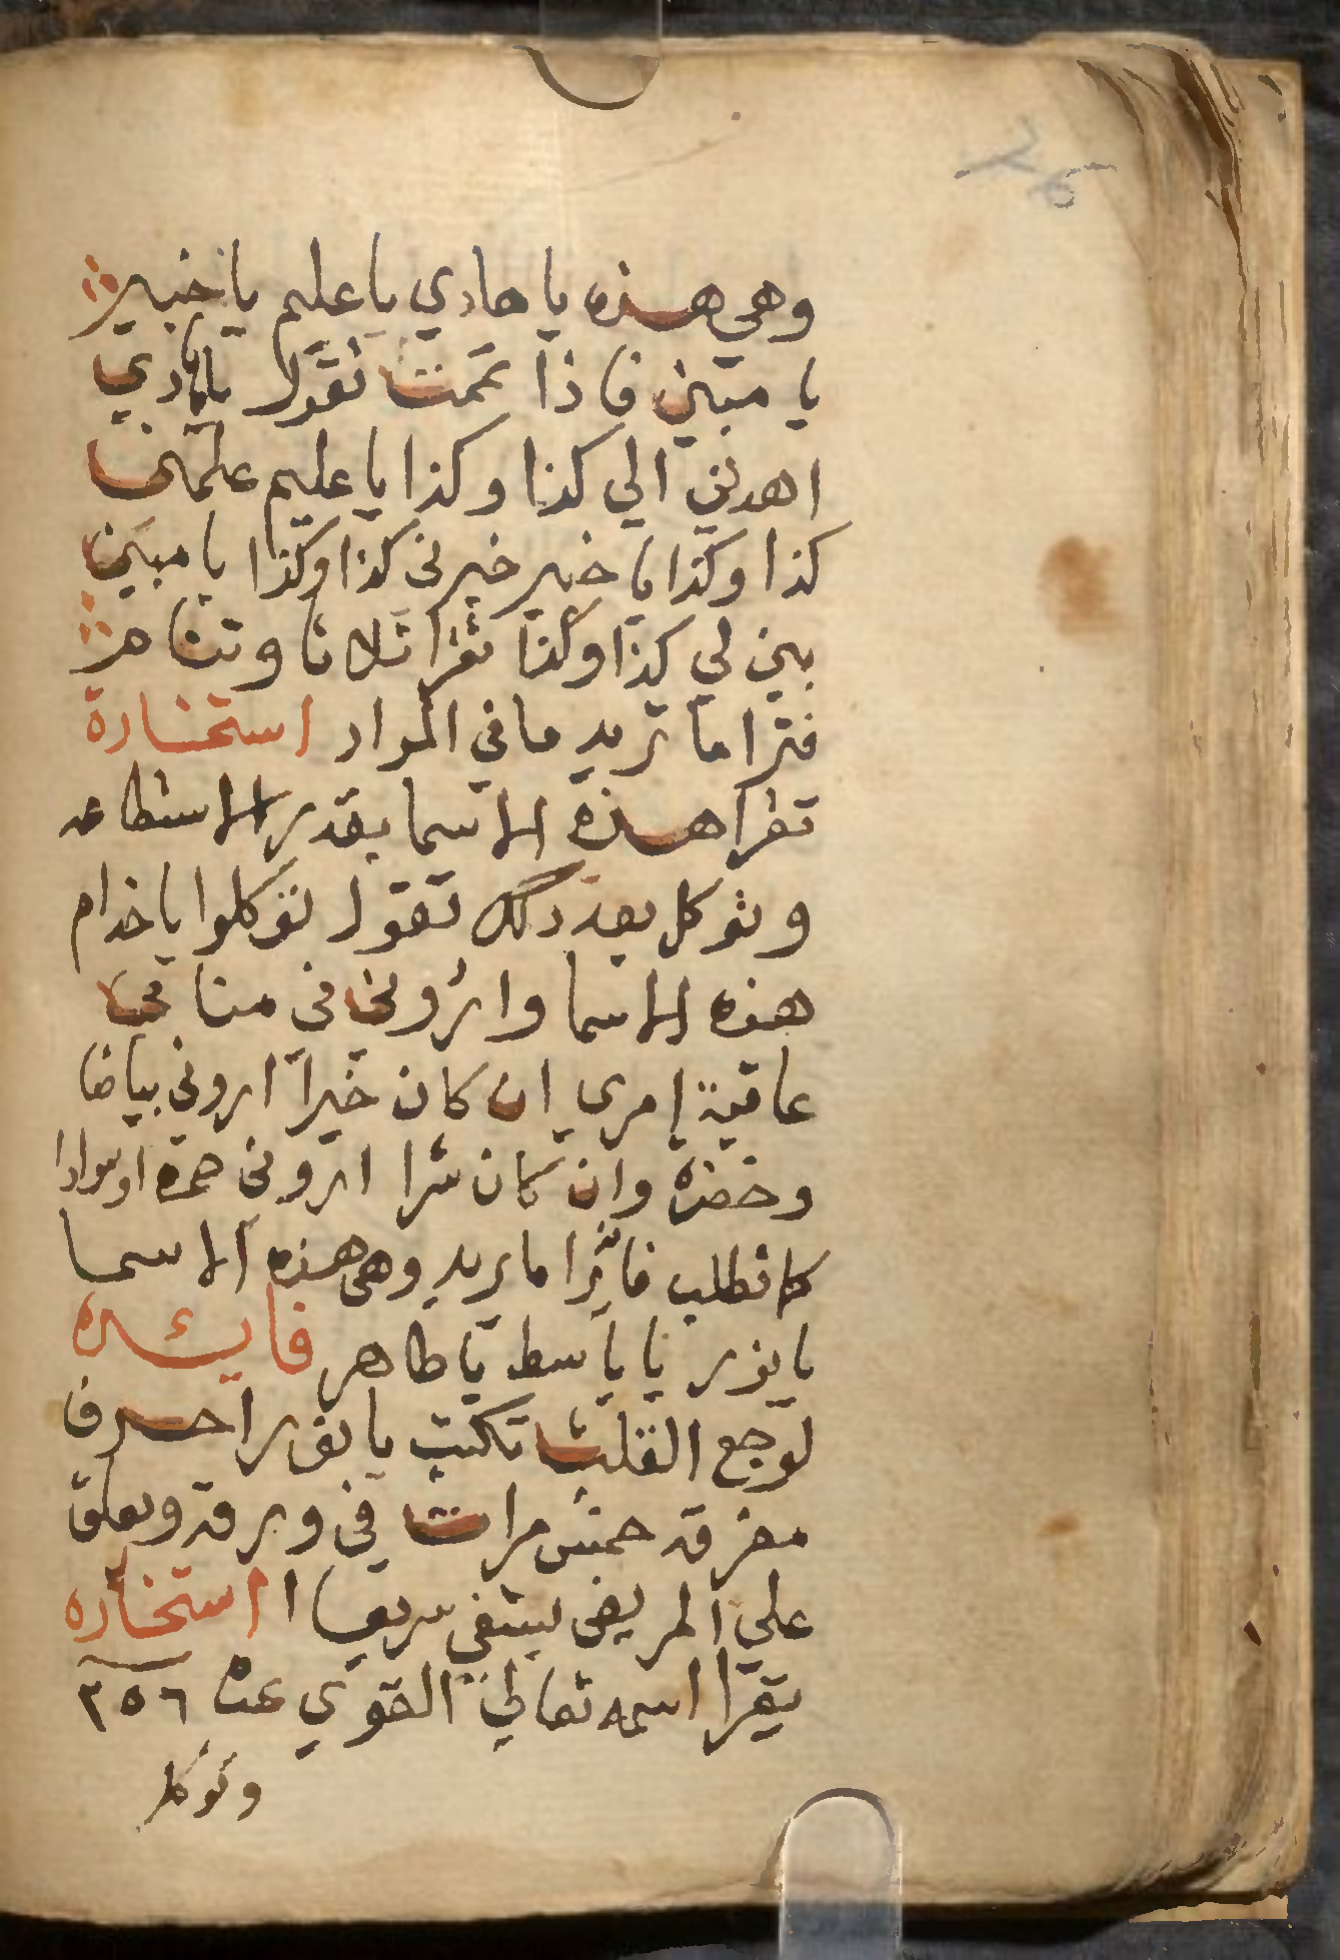 وهي هذه يا هادي يا عليم يا خبير
يا مبين فاذا تمت تقول يا هادي
اهدني الي كذا وكذا يا عليم علمني
كذا وكذا يا خبير خبرني كذا وكذا يا مبين
بين لي كذا وكذا تقرا ثلاثا وتنام
فترا ما تريد ما في المراد استخارة
تقرا هذه الاسما بقدر الاستطاعه
وتوكل بعد ذلك تقول توكلوا يا خدام
هذه الاسما واروني في منامي
عاقبة امري ان كان خيرا اروني بياضا
وخضرة وان كان شرا اروني حمرة او سوادا
كما تطلب فانه يرا ما يريد وهي هذه الاسما
يا نور يا باسط يا ظاهر فايده
لوجع القلب تكتب يا نور احرف
مفرقه خمس مرات في ورقه وتعلق
علي المريض يشفي سريعا استخاره
يقرا اسمه تعالي القوي عدد ٢٥٦
وتوكل